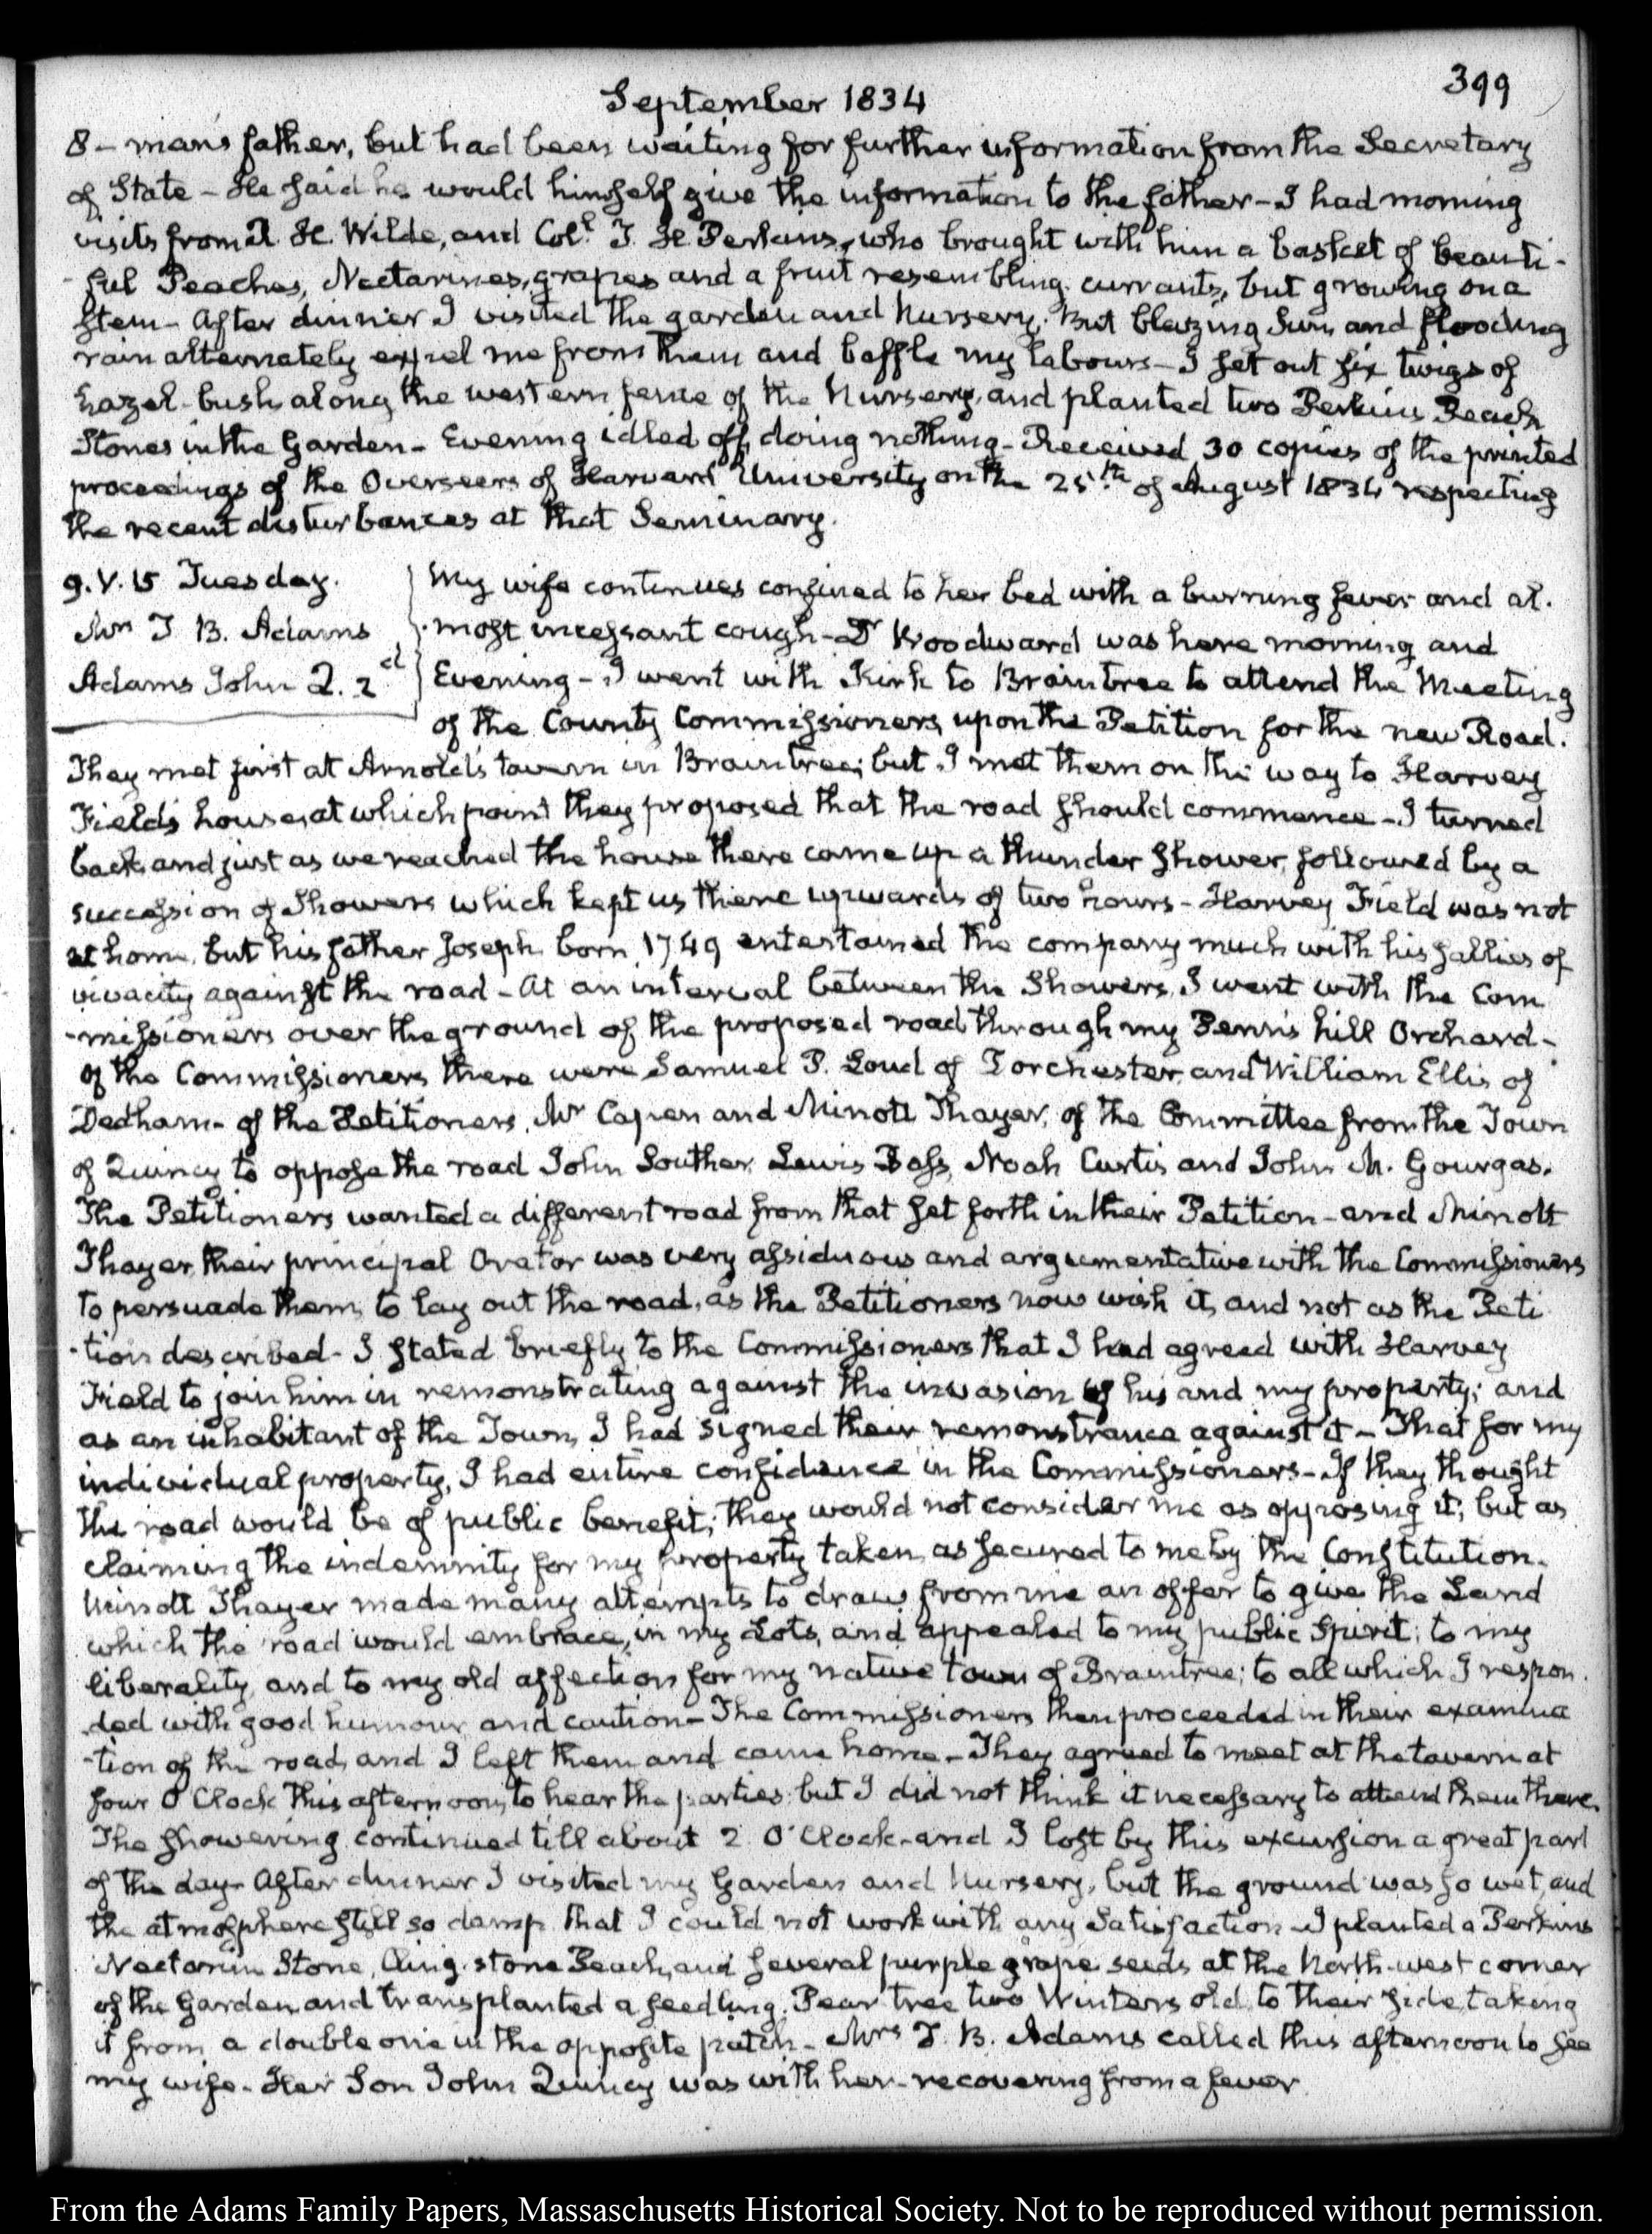 399
September 1834
8 – man's father, but had been waiting for further information from the Secretary
of State – He said he would himself give the information to the father – I had morning
visits from R. H. Wilde, and Coll. T. H. Perkins, who brought with him a basket of beauti-
-ful Peaches, Nectarines, grapes and a fruit resembling currants, but growing on a
stem – After dinner I visited the garden and Nursery; But blazing Sun and flooding
rain alternately expel me from them and baffle my labours – I set out six twigs of
hazel-bush along the western fence of the Nursery, and planted two Perkins Peach
Stones in the Garden – Evening idled off, doing nothing – Received 30 copies of the printed
proceedings of the Overseers of Harvard University on the 25th of August 1834 respecting
the recent disturbances at that Seminary.
9. V. 15 Tuesday.
Mrs T B. Adams
Adams John Q. 2d
My wife continues confined to her bed with a burning fever and al-
-most incessant cough – Dr Woodward was here morning and
Evening – I went with Kirk to Braintree to attend the Meeting
of the County Commissioners, upon the Petition for the new Road.
They met first at Arnold's tavern in Braintree; but I met them on the way to Harvey
Field's house, at which point they proposed that the road should commence – I turned
back, and just as we reached the house there came up a thunder shower, followed by a
succession of Showers which kept us there upwards of two hours – Harvey Field was not
at home, but his father Joseph, born 1749 entertained the company much with his sallies of
vivacity against the road – At an interval between the Showers, I went with the Com
-missioners over the ground of the proposed road through my Penn's hill Orchard –
Of the Commissioners there were Samuel P. Loud of Dorchester, and William Ellis of
Dedham – of the Petitioners, Mr Capen and Minott Thayer, of the Committee from the Town
of Quincy to oppose the road John Souther, Lewis Bass, Noah Curtis and John M. Gourgas.
The Petitioners wanted a different road from that set forth in their Petition – and Minott
Thayer, their principal Orator was very assiduous and argumentative with the Commissioners
to persuade them, to lay out the road, as the Petitioners now wish it, and not as the Peti
-tion described – I stated briefly to the Commissioners that I had agreed with Harvey
Field to join him in remonstrating against the invasion of his and my property; and
as an inhabitant of the Town, I had signed their remonstrance against it – That for my
individual property, I had entire confidence in the Commissioners – If they thought
the road would be of public benefit, they would not consider me as opposing it, but as
claiming the indemnity for my property taken, as secured to me by the Constitution.
Minott Thayer made many attempts to draw from me an offer to give the Land
which the road would embrace, in my Lots, and appealed to my public Spirit; to my
liberality, and to my old affection for my native town of Braintree; to all which I respon
-ded with good humour and caution – The Commissioners then proceeded in their examina
-tion of the road, and I left them and came home – They agreed to meet at the tavern at
four O'Clock this afternoon, to hear the parties, but I did not think it necessary to attend them there.
The showering continued till about 2 O'Clock – and I lost by this excursion a great part
of the day – After dinner I visited my Garden and Nursery, but the ground was so wet, and
the atmosphere still so damp that I could not work with any Satisfaction – I planted a Perkins
Nectarin Stone, Cling-stone Peach, and several purple grape seeds at the North-west corner
of the Garden, and transplanted a seedling Pear tree two Winters old, to their side, taking
it from a double one in the opposite patch – Mrs T. B. Adams called this afternoon to see
my wife – Her Son John Quincy was with her – recovering from a fever
From the Adams Family Papers, Massachusetts Historical Society. Not to be reproduced without permission.